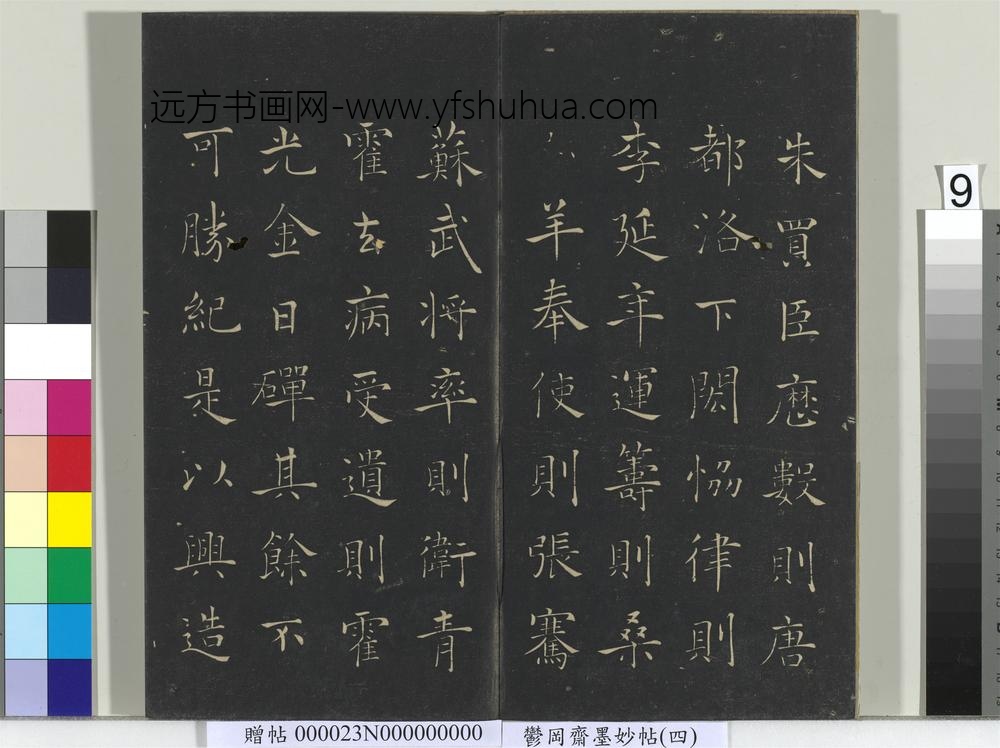 远方书画网-www.yfshuhua.com
朱買臣歷數則唐
都洛下閎恊律則
李延年運籌則桑
羊奉使則張騫
蘇武将率則衛青
霍去病受遺則霍
光金日磾其餘不
可勝紀是以興造
9
贈帖 000023N000000000
鬱岡齋墨妙帖(四)